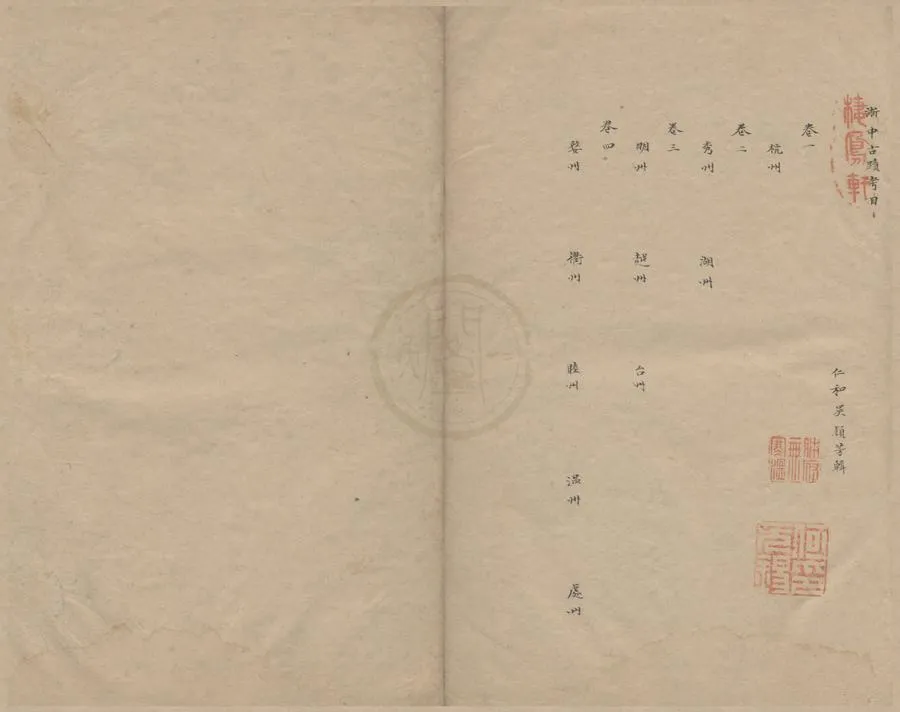 浙中古蹟考目
仁和吳穎芳輯
卷一
杭州
卷二
秀州 湖州
卷三
明州 越州 台州
卷四
婺州 衢州 睦州 温州 處州
棲鳳軒